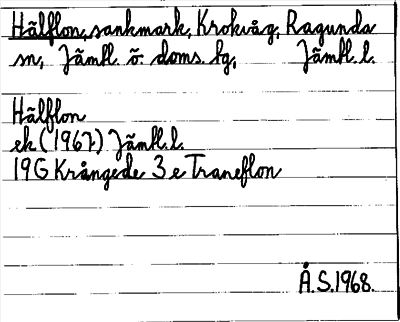 Hälflon, sankmark, Krokvåg, Ragunda
sn, Jämtl. ö. doms. hg, Jämtl. l.
Hälflon
ek (1967) Jämtl. l.
19G Krångede 3 e Traneflon
Å.S. 1968.